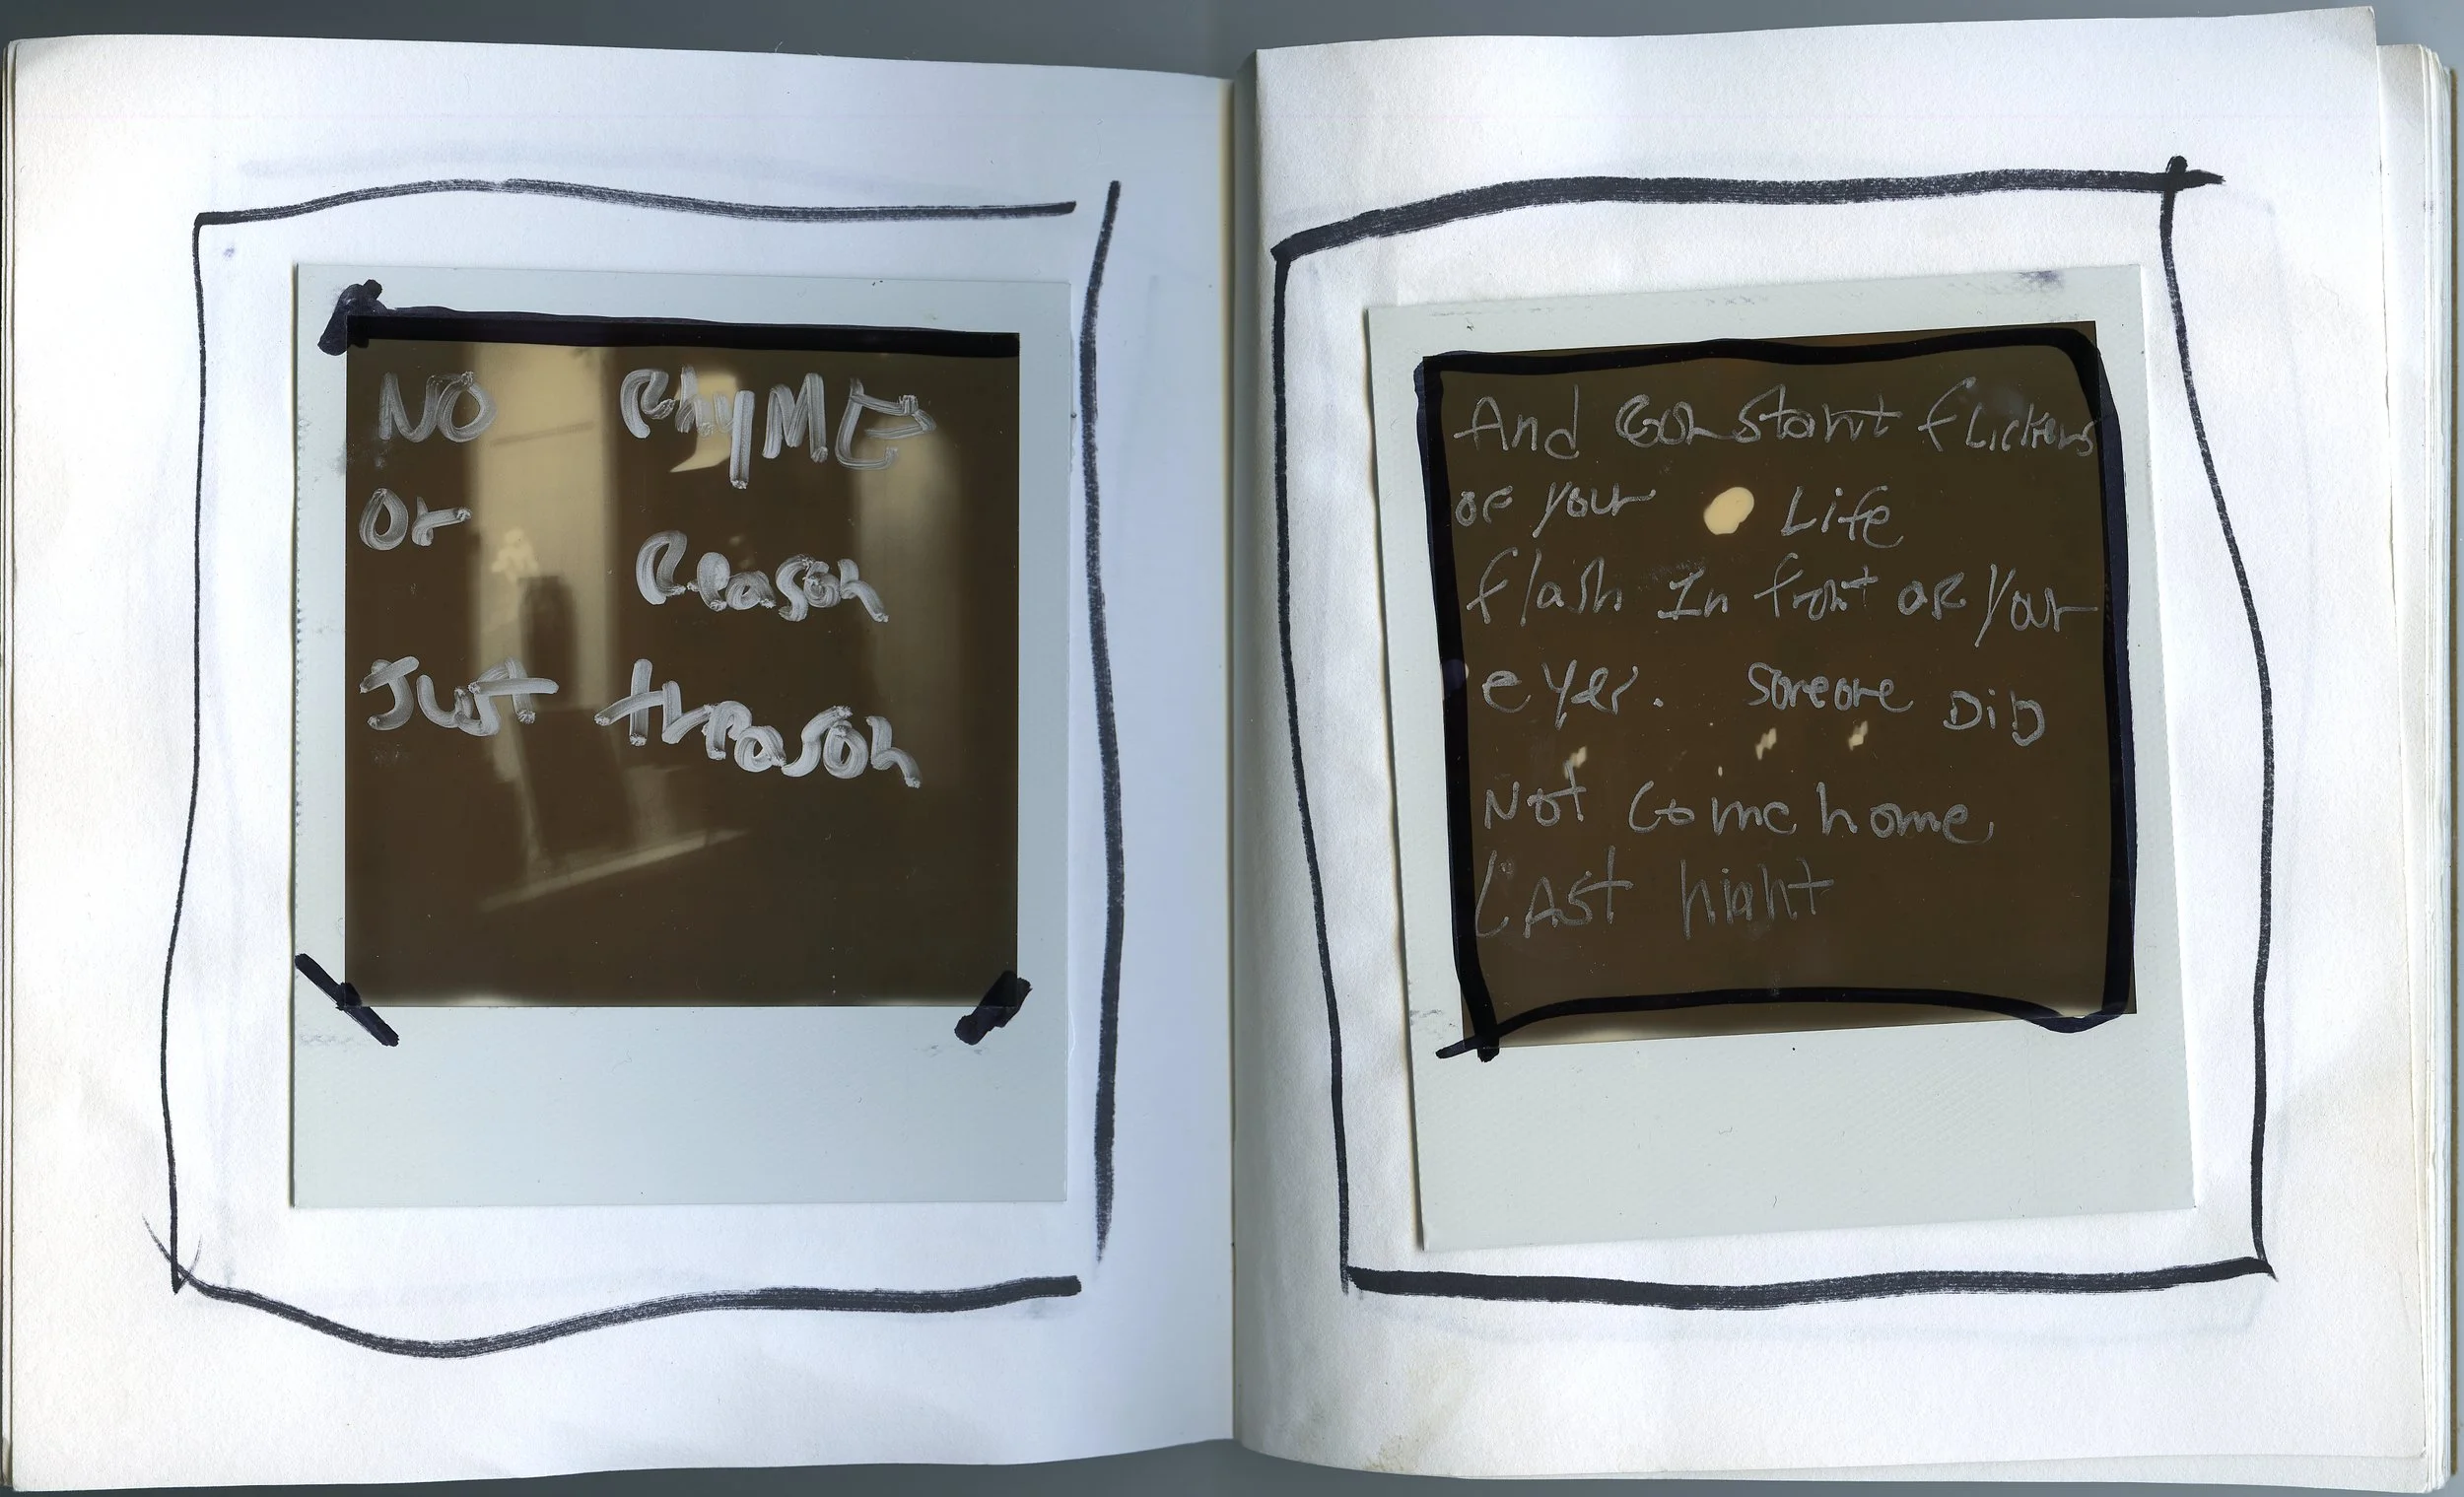 NO RhyME
Or Reason
Just treason
And Constant flickers
of your Life
flash In front of your
eyes. Someone Did
Not Come home
LAst night